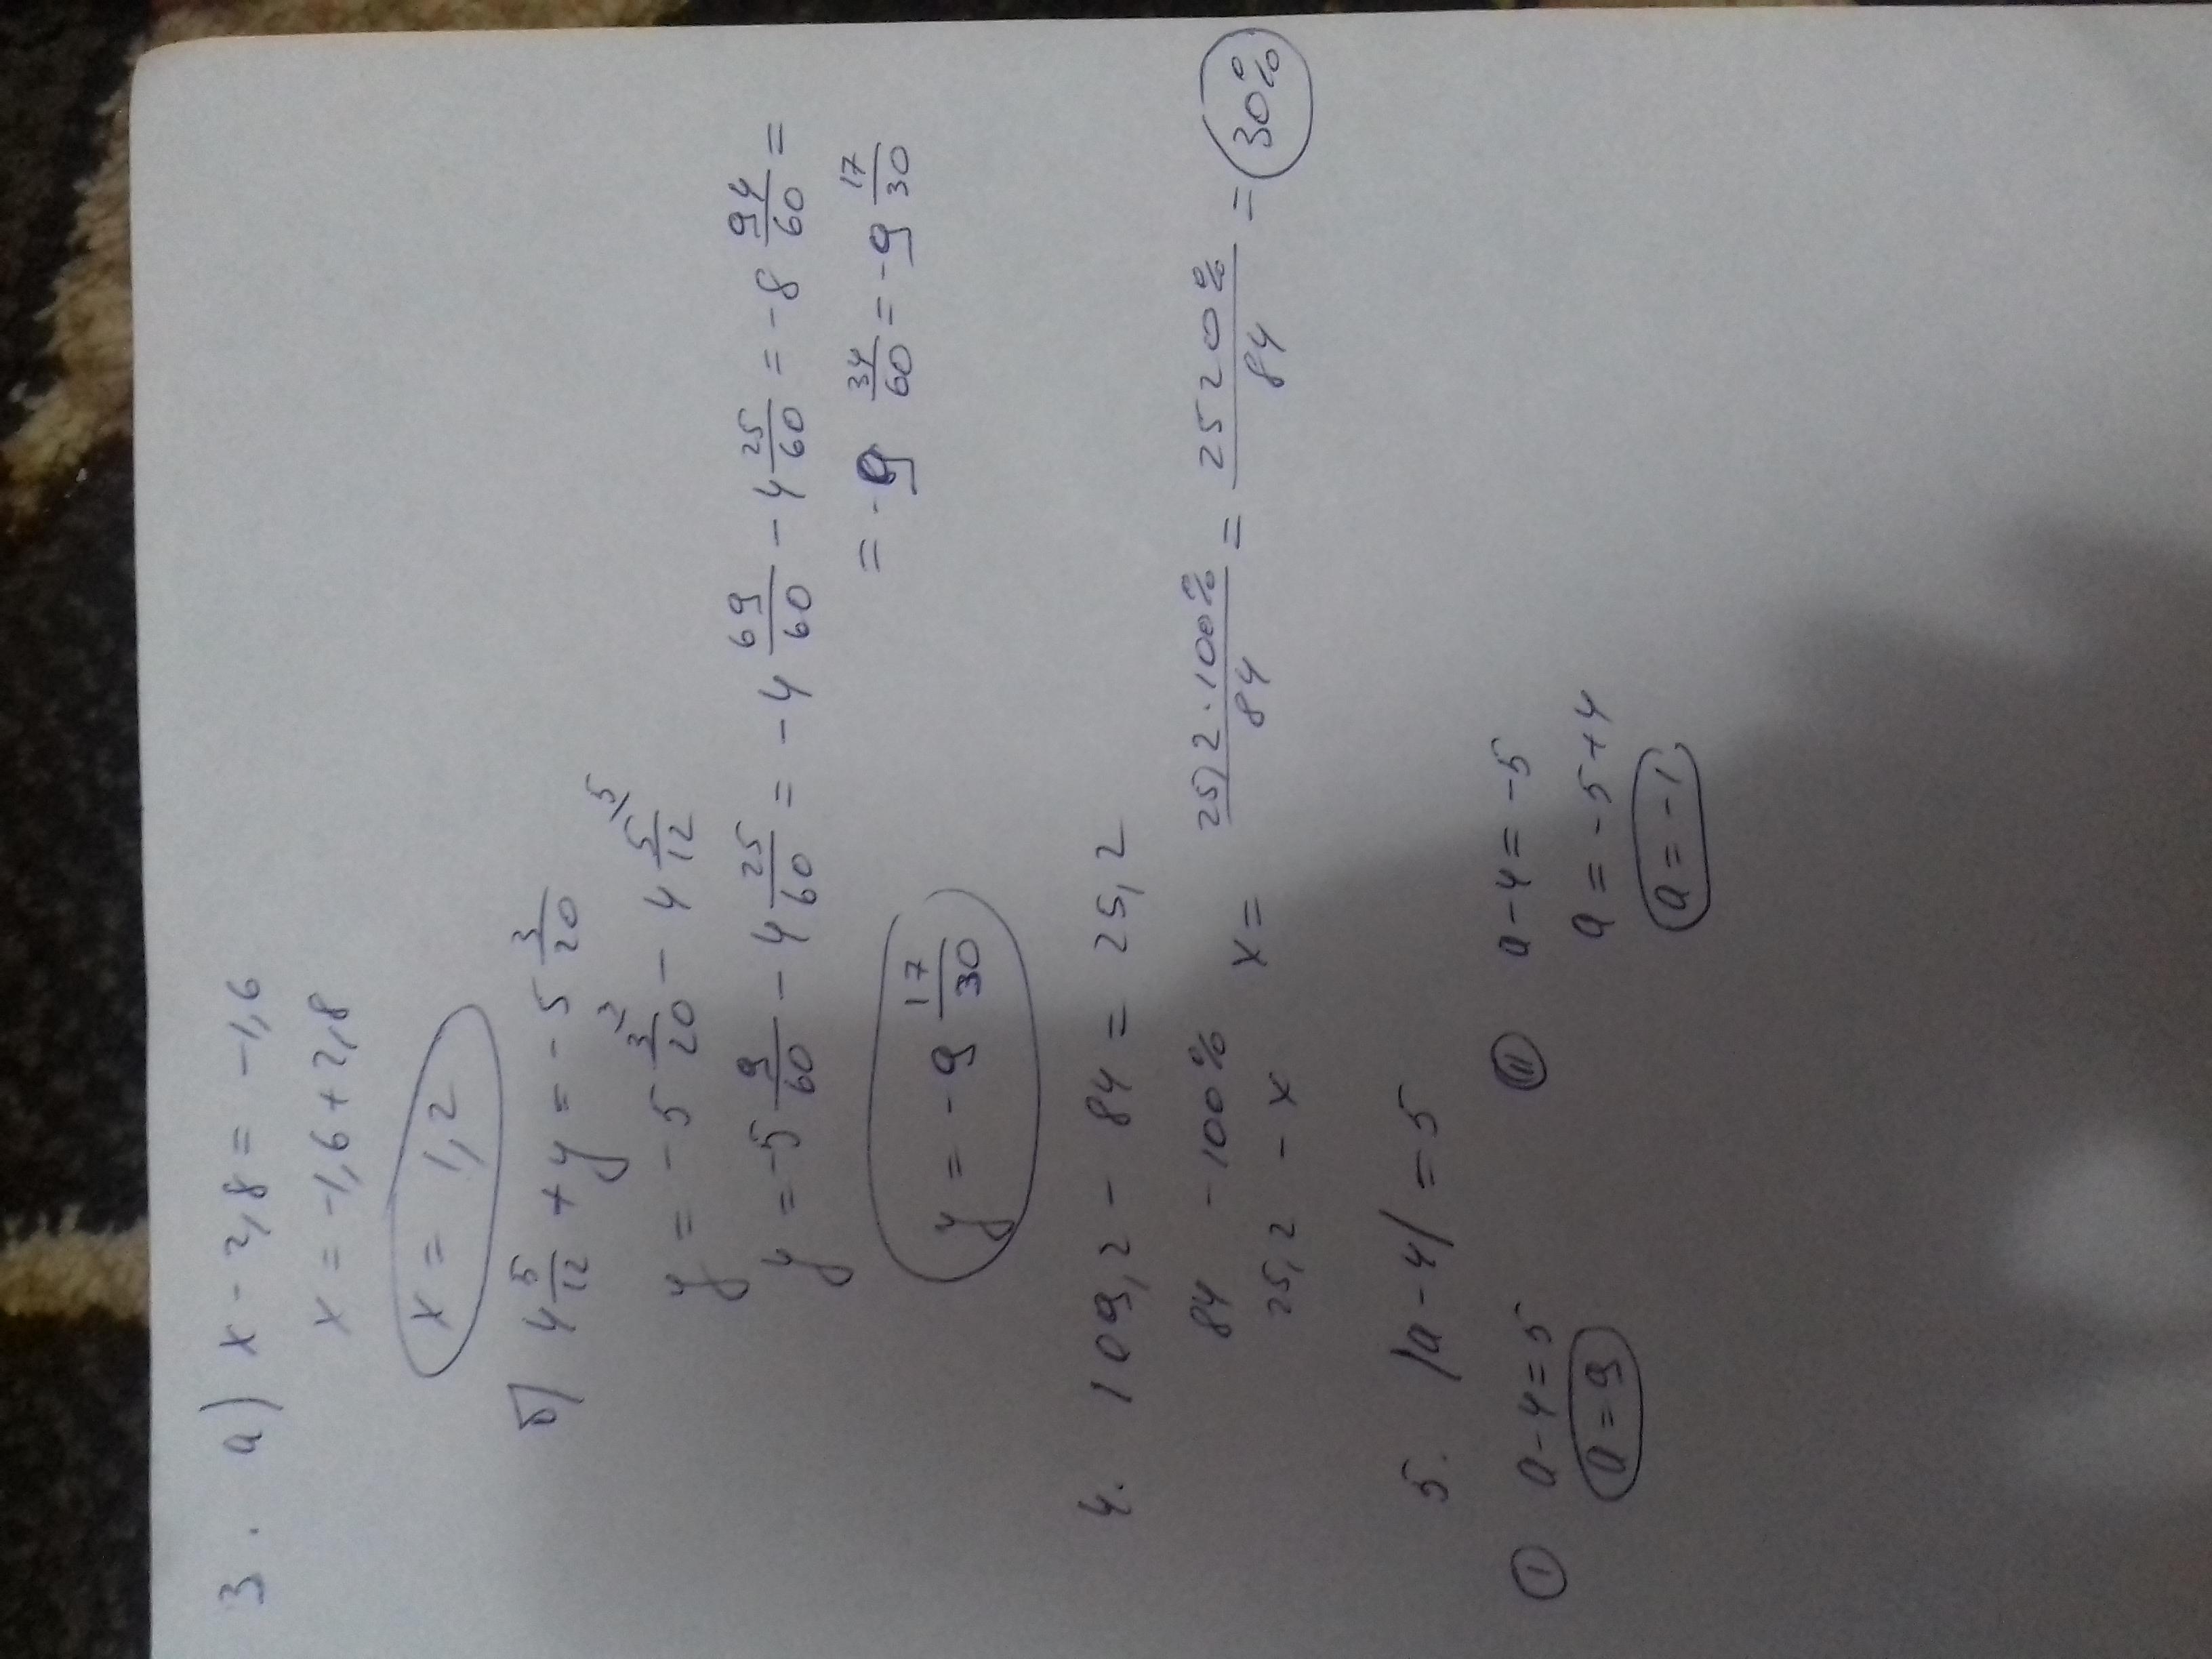 3. a) x - 2,8 = -1,6
x = -1,6 + 2,8
x = 1,2
б) 4 5/12 + y = -5 3/20
y = -5 3/20 ³ - 4 5/12 ⁵
y = -5 9/60 - 4 25/60 = -4 69/60 - 4 25/60 = -8 94/60 =
= -9 34/60 = -9 17/30
y = -9 17/30
4. 109,2 - 84 = 25,2
84 - 100% x = 25,2 · 100% / 84 = 2520% / 84 = 30%
25,2 - x
5. |a - 4| = 5
I a - 4 = 5 II a - 4 = -5
a = 9 a = -5 + 4
a = -1